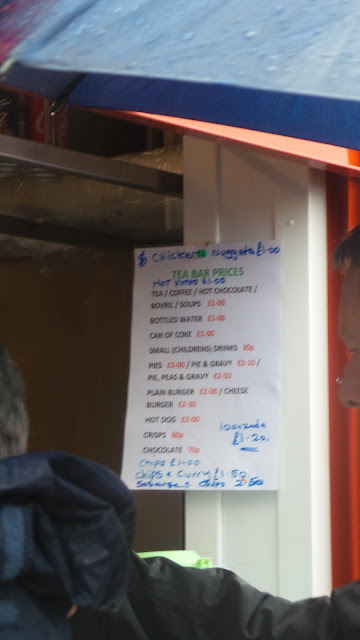 Chicken Nuggets £1.00
TEA BAR PRICES
HOT VIMTO £1.00
TEA / COFFEE / HOT CHOCOLATE /
BOVRIL / SOUPS £1-00
BOTTLED WATER £1-00
CAN OF COKE £1-00
SMALL (CHILDRENS) DRINKS 30p
PIES £2-00 / PIE & GRAVY £2-10 /
PIE, PEAS & GRAVY £2-50
PLAIN BURGER £2-00 / CHEESE
BURGER £2-30
HOT DOG £2-00
CRISPS 60p
£1-20.
CHOCOLATE 70p
Chips £1-00
Chips & Curry £1-50
Sausage & Chips 2-50